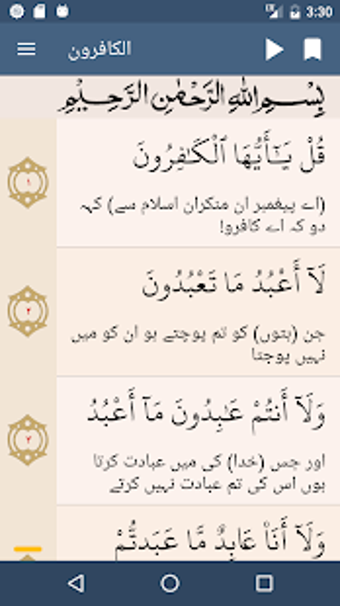 3:30
الكافرون
بِسْمِ اللهِ الرَّحْمٰنِ الرَّحِيْمِ
قُلْ يَـٰٓأَيُّهَا ٱلْكَـٰفِرُونَ
۱
(اے پیغمبر ان منکران اسلام سے) کہہ
دو کہ اے کافرو!
لَآ أَعْبُدُ مَا تَعْبُدُونَ
۲
جن (بتوں) کو تم پوجتے ہو ان کو میں
نہیں پوجتا
وَلَآ أَنتُمْ عَـٰبِدُونَ مَآ أَعْبُدُ
۳
اور جس (خدا) کی میں عبادت کرتا
ہوں اس کی تم عبادت نہیں کرتے
وَلَآ أَنَا۠ عَابِدٌ مَّا عَبَدتُّمْ